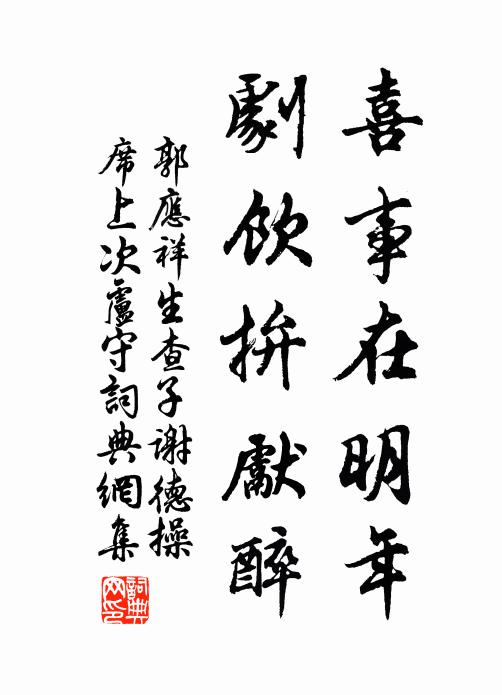 喜事在明年
劇飲拚獻醉
郭應祥生查子謝德操
席上次盧守詞典網集
詞典網印